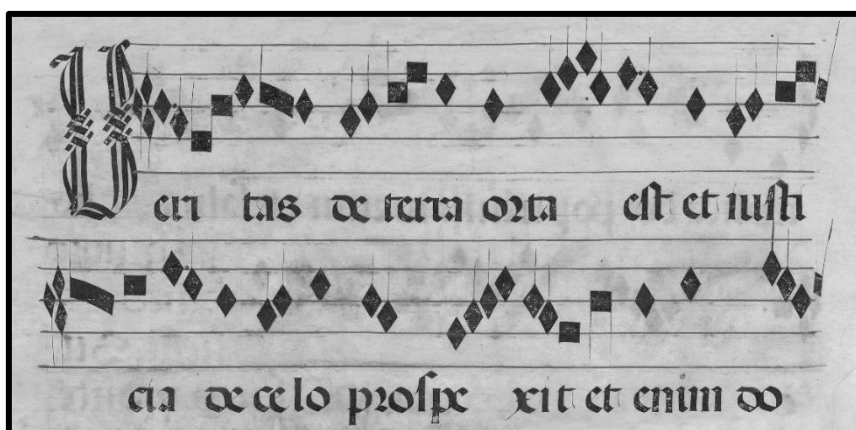 Veri tas de terra orta est et iusti
cia de celo prospe xit et enim do